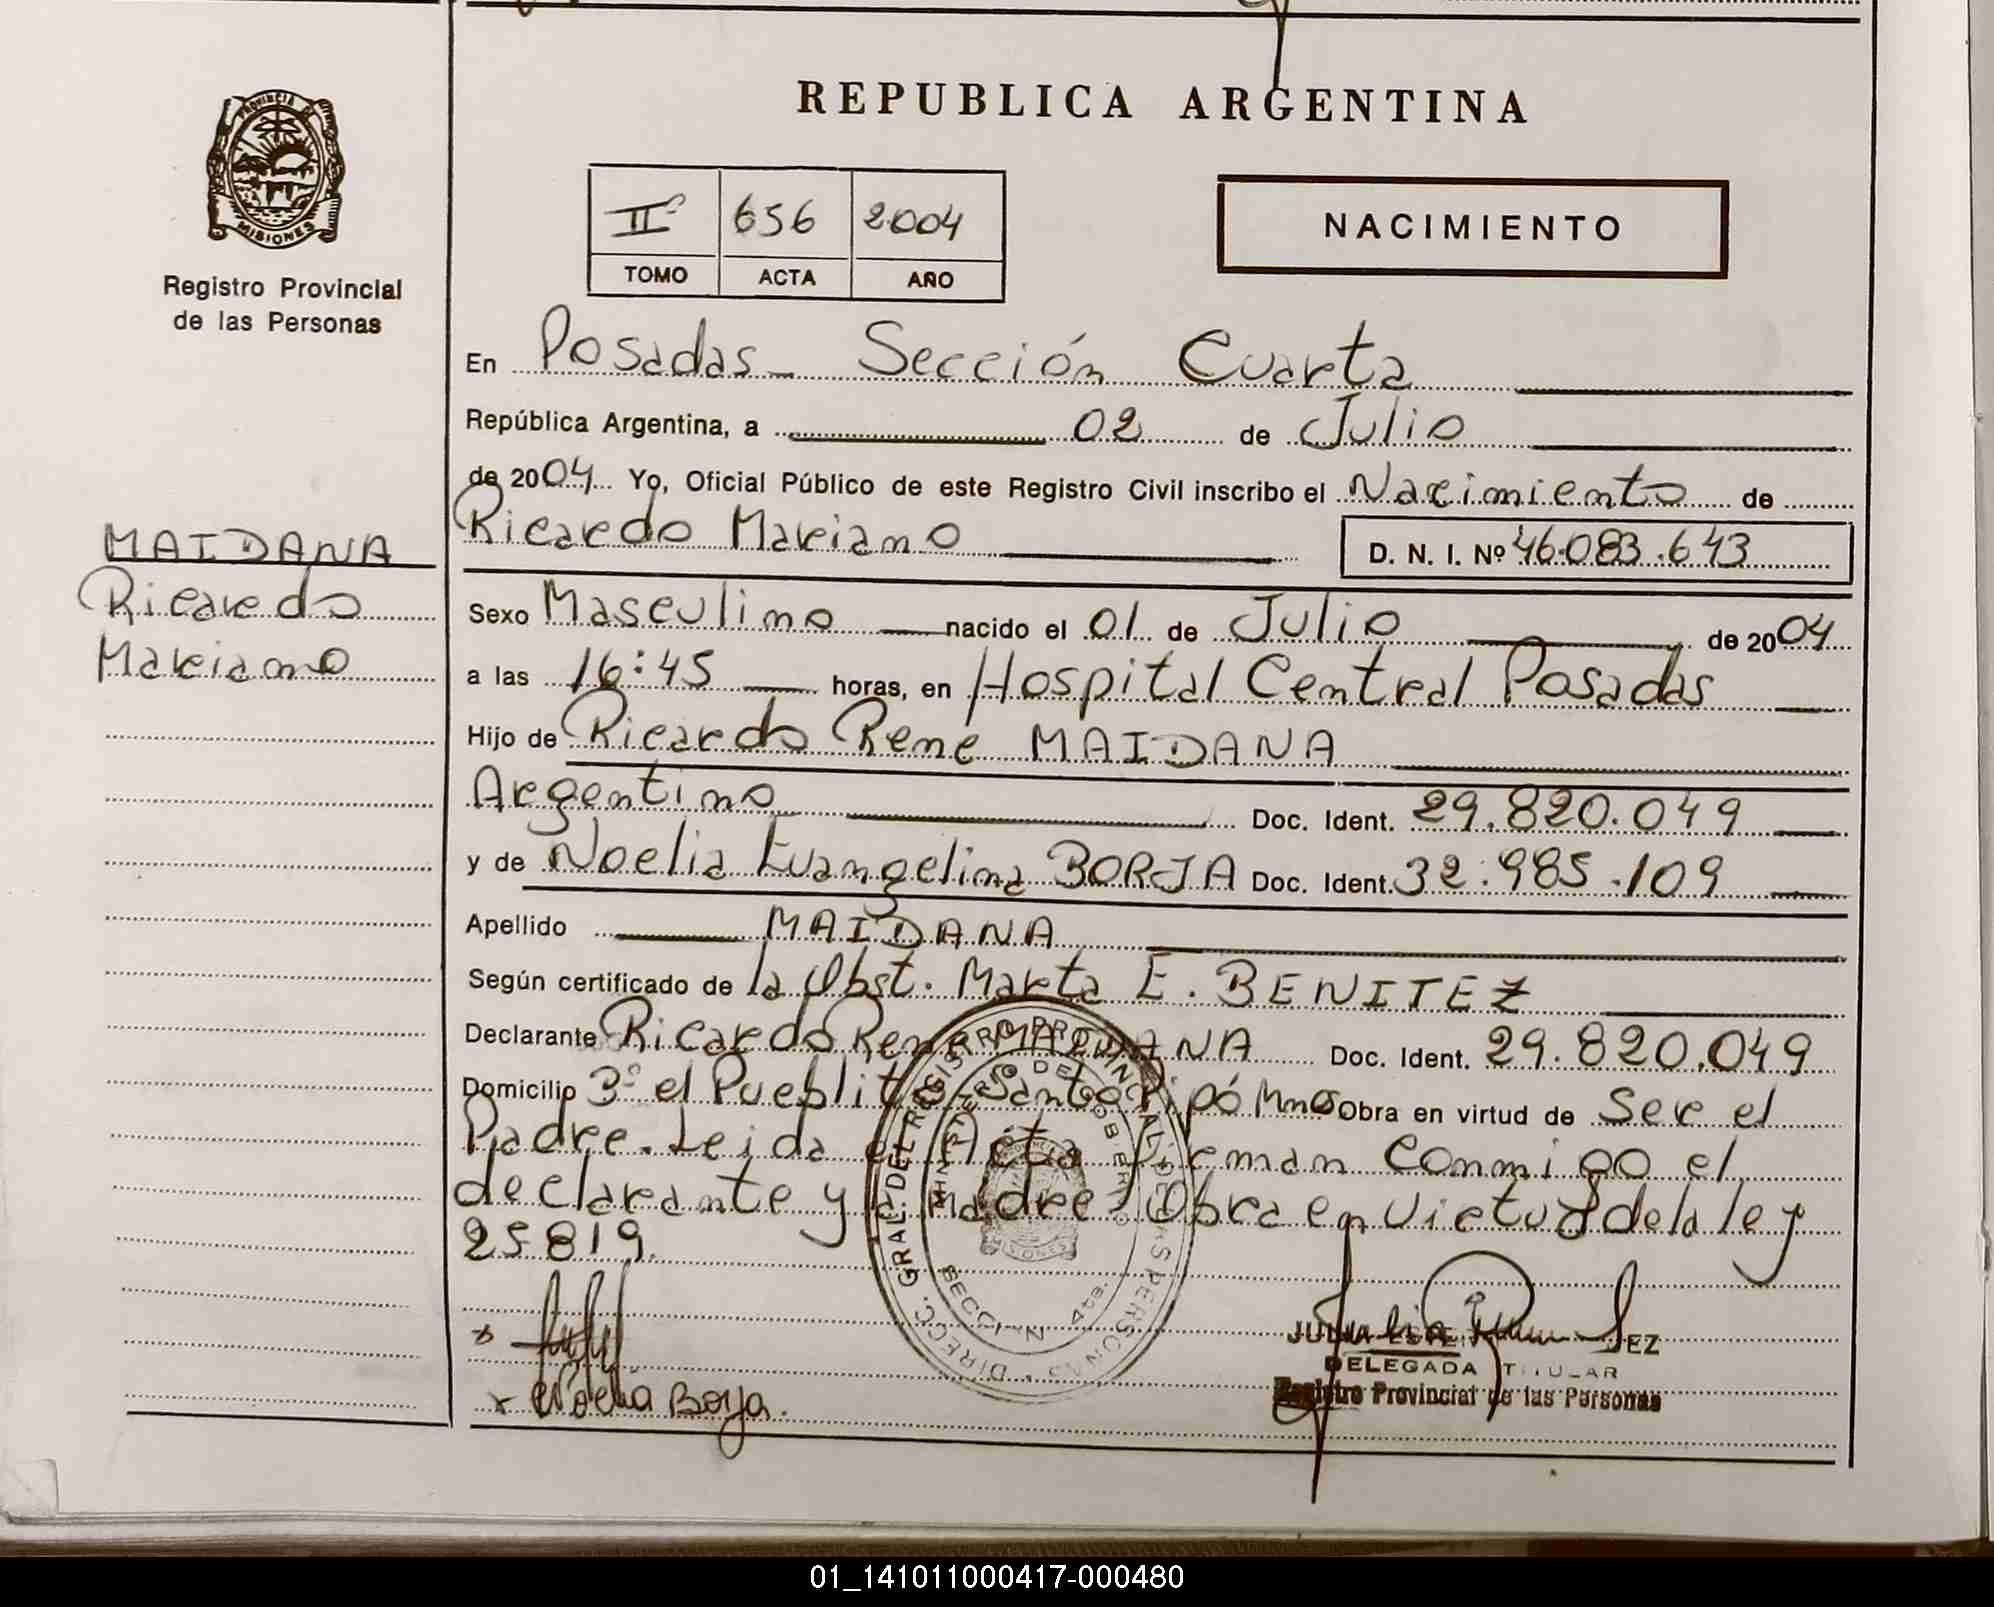 REPUBLICA ARGENTINA
PROVINCIA DE
MISIONES
Registro Provincial
de las Personas
IIº 656 2004
TOMO ACTA AÑO
NACIMIENTO
En Posadas - Sección Cuarta
República Argentina, a 02 de Julio
de 2004 Yo, Oficial Público de este Registro Civil inscribo el Nacimiento de
Ricardo Mariano D. N. I. Nº 46.083.643
MAIDANA
Ricardo
Mariano
Sexo Masculino nacido el 01 de Julio de 2004
a las 16:45 horas, en Hospital Central Posadas
Hijo de Ricardo Rene MAIDANA
Argentino Doc. Ident. 29.820.049
y de Noelia Evangelina BORJA Doc. Ident. 32.985.109
Apellido MAIDANA
Según certificado de la Obst. Marta E. BENITEZ
Declarante Ricardo Rene MAIDANA Doc. Ident. 29.820.049
Domicilio 3º el Pueblito Santo Pipó Mnes Obra en virtud de Ser el
Padre. Leida el Acta Firman conmigo el
declarante y madre Obra en Virtud de la ley
25819.
DIRECC. GRAL. DEL REGISTRO PROVINCIAL DE LAS PERSONAS
MINISTERIO DE GOBIERNO
SECCION 4ta.
Noelia Borja.
DELEGADA TITULAR
Registro Provincial de las Personas
01_141011000417-000480